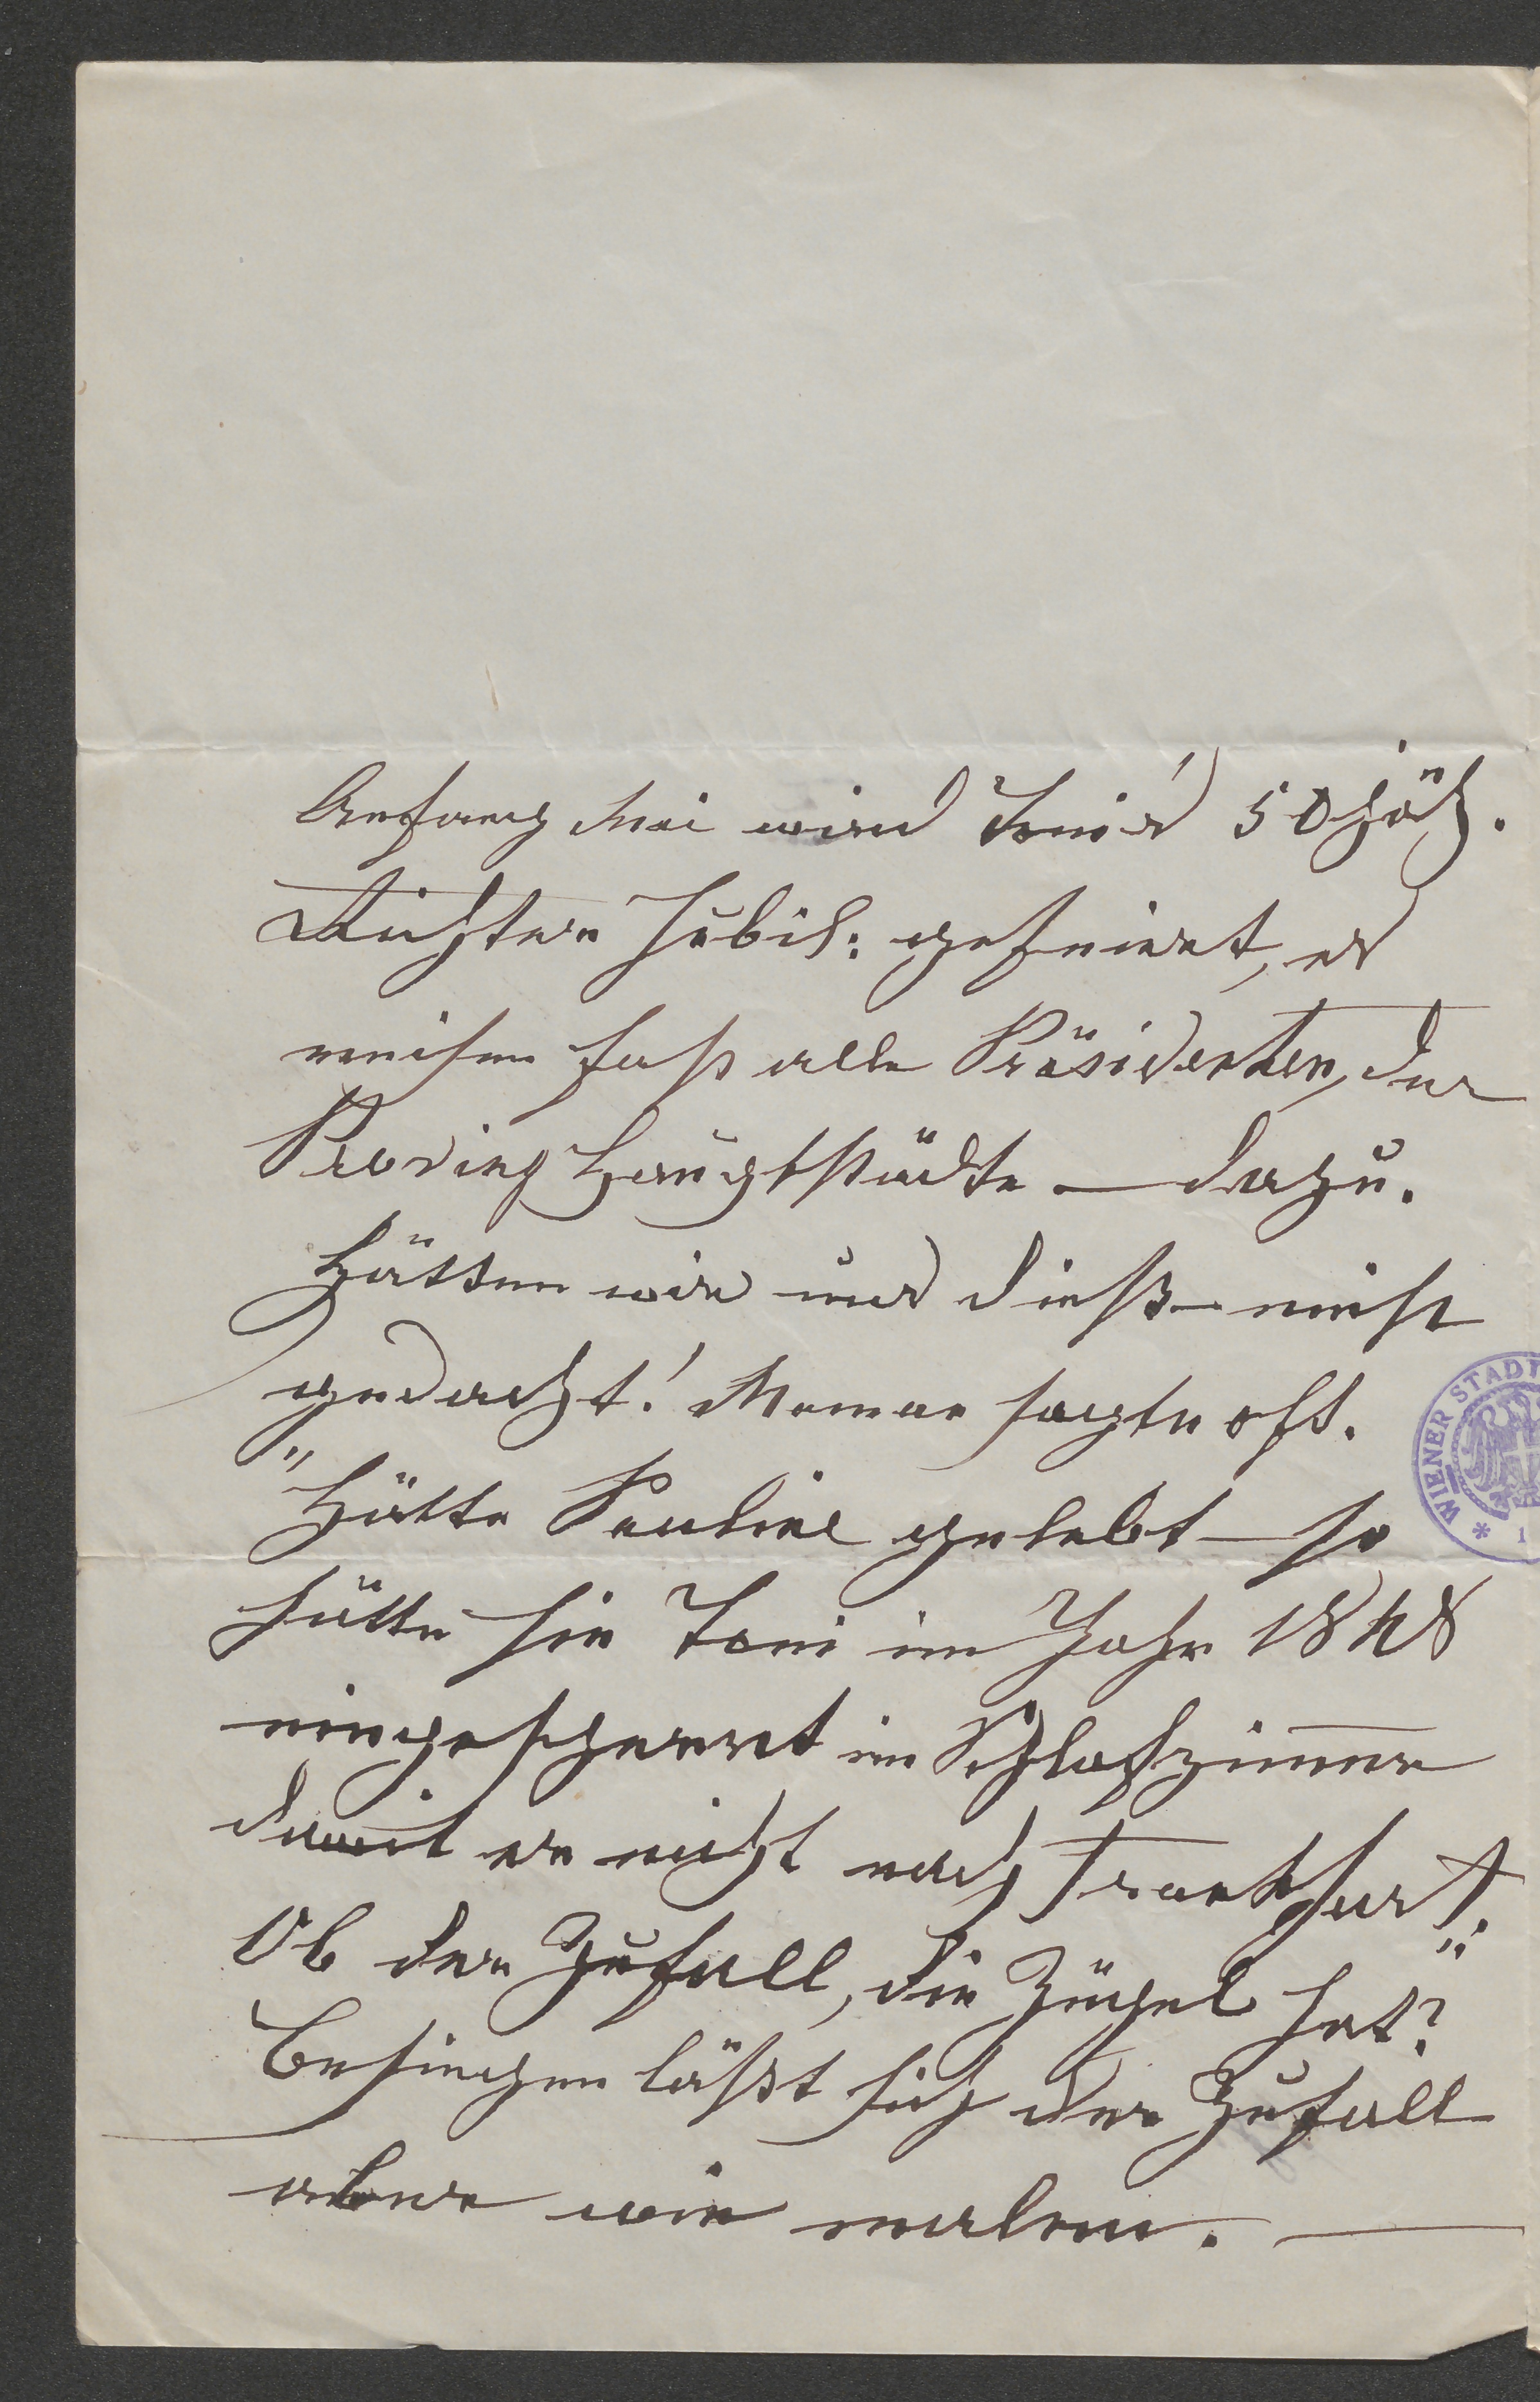 Anfang Mai wird Toni's 50jäh.
Dichter Jubil: gefeiert, es
reisen fast alle Präsidenten, der
Provinz Hauptstädte — dazu.
Hätten wir uns dieß — nicht
gedacht! Maman sagte oft.
"Hätte Pauline gelebt — so
hätte sie Toni im Jahr 1848
eingesperrt im Schlafzimer
damit er nicht nach Frankfurt."
Ob der Zufall, die Zügel hat?
Besingen läßt sich der Zufall
aber wie malen. —
WIENER STADT